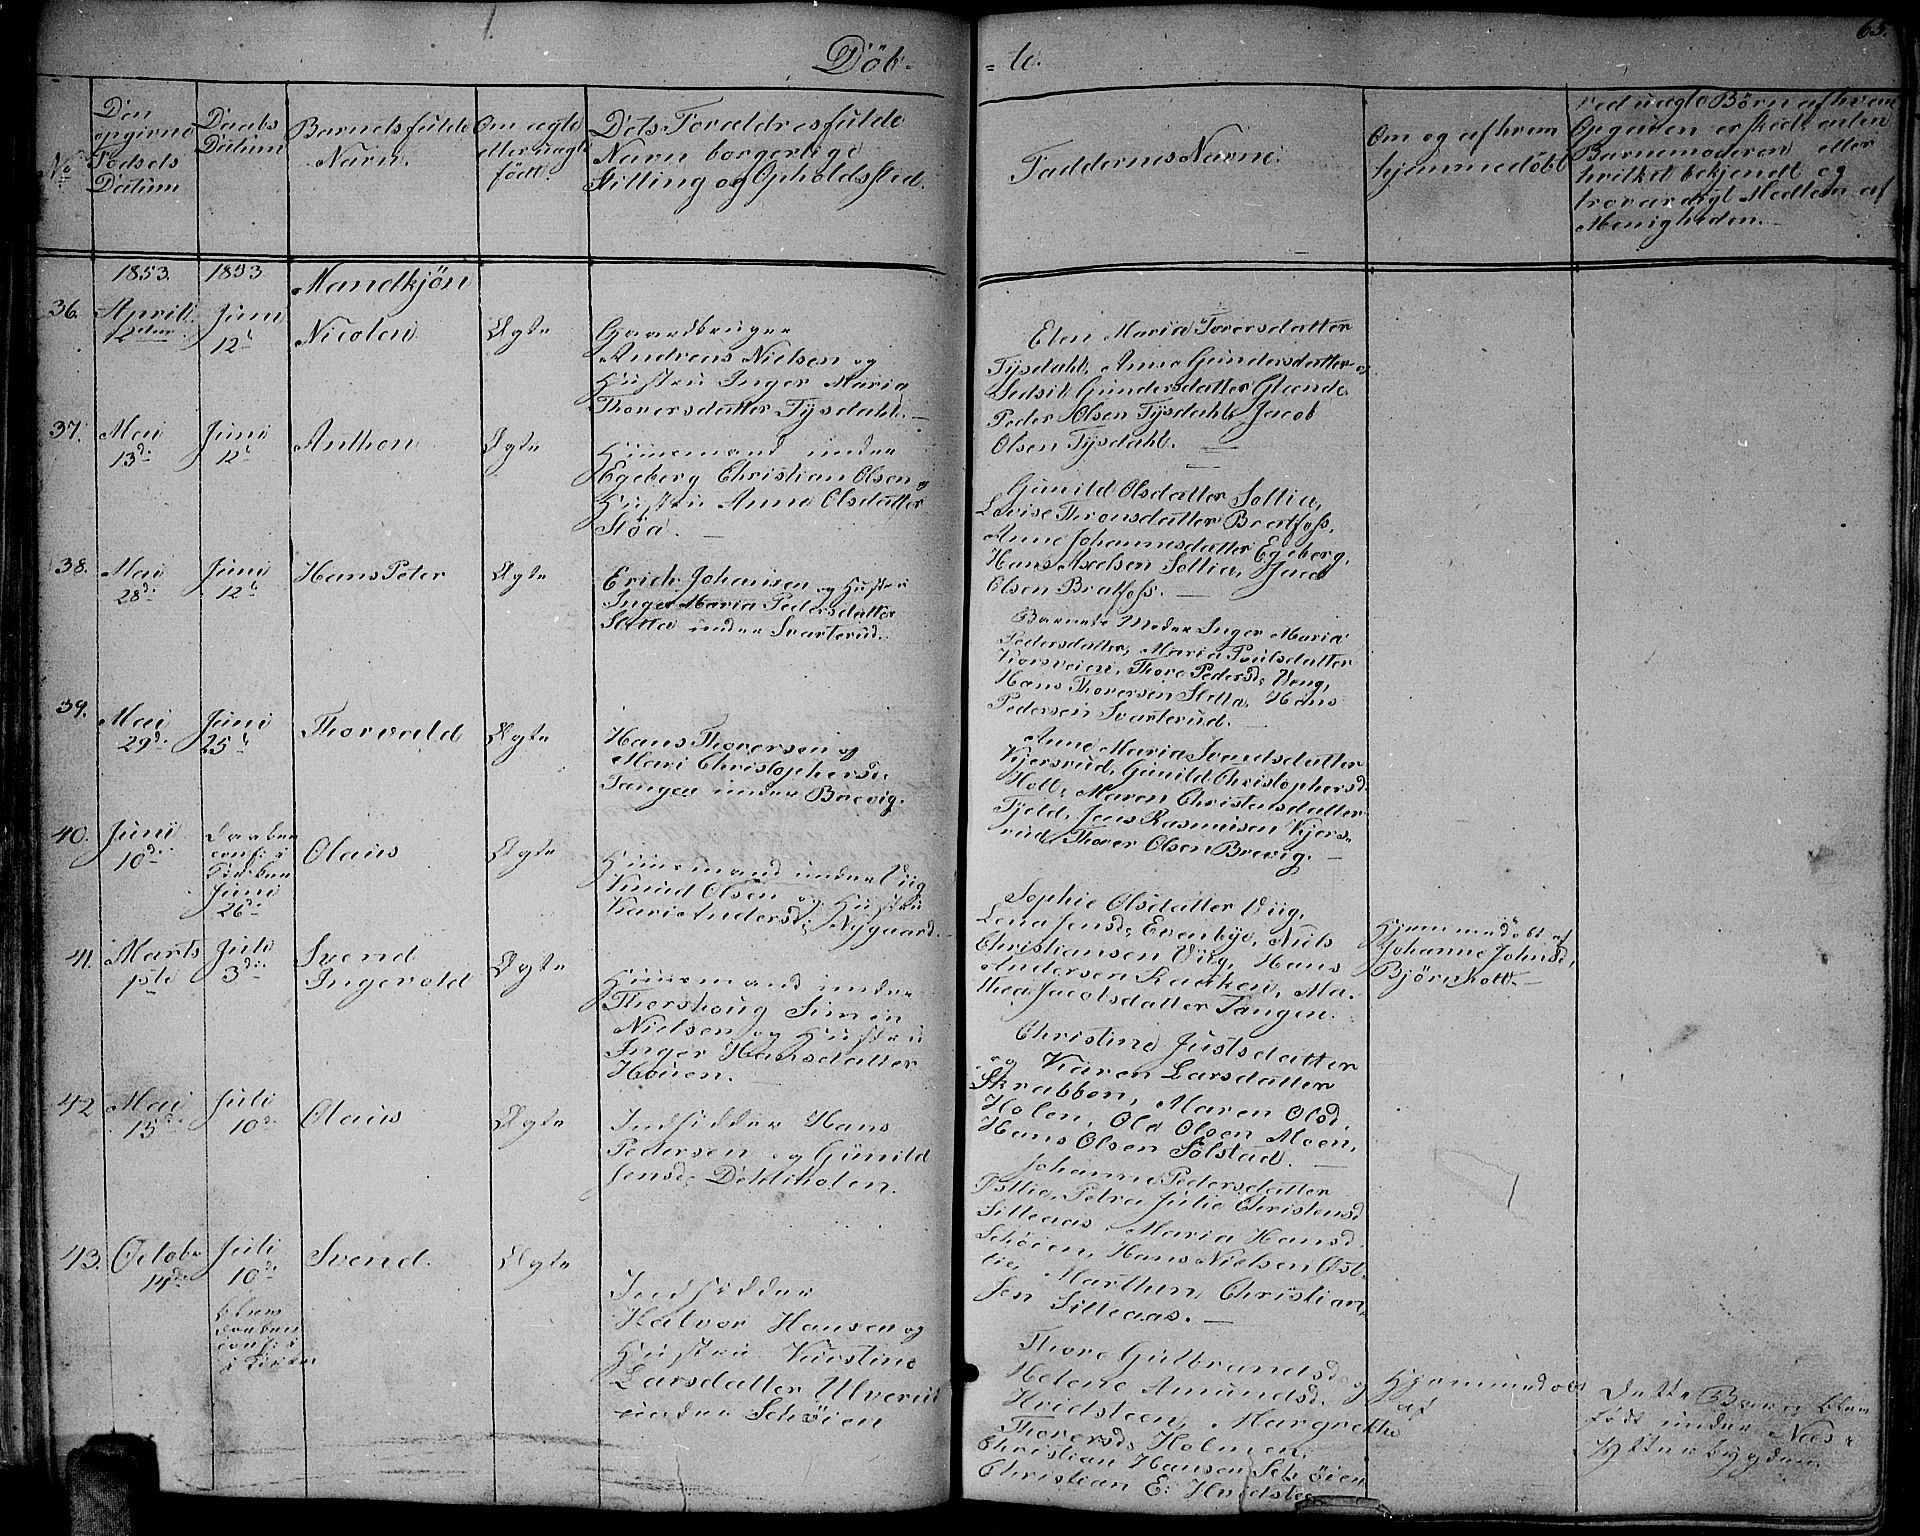 63.
Döb-
= te.
No
Den
opgivne
Födsels
Datum
Daabs
Datum
Barnets fulde
Navn.
Om ægte
eller uægte
födt.
Dets Forældres fulde
Navn borgerlige
Stilling og Opholdssted.
Faddernes Navne.
Om og af hvem
hjemmedöbt
ved uægte Börn af hvem
Opgiven er skedt enten
Barnemoderen eller
hvilket bekjendt og
troværdigt Medlem af
Menigheden.
1853.
1853
Mandkjön
36.
April
12
Juni
12
Nicolen
Ægte
Gaardbruger
Andreas Nielsen og
Hustru Inger Maria
Thorersdatter Tysdahl.
Elen Maria Torersdatter
Tysdahl, Anne Gundersdatter
Gundersdatter
Peder Olsen Tysdahl, Jacob
Olsen Tysdahl.
37.
Mai
13d
Juni
12t
Anthon
Ægte
Huusmand under
Egeberg Christian Olsen og
Hustru Anne Olsdatter
Stöa.
Gunild Olsdatter Soltia,
Lovise Thronsdatter Bratfoss,
Anne Johannesdatter Egeberg,
Hans Axelsen Soltia, Jacob
Olsen Bratfoss.
38.
Mai
28d
Juni
12t
Hans Peter
Ægte
Erich Johansen og Hustru
Inger Maria Pedersdatter
Sletta under Svarterud.
Barnets Moder Inger Maria
Pedersdatter, Maria Poulsdatter
Korsveien, Thore Pedersd, Veng,
Hans Thorersen Sletta, Hans
Pedersen Svarterud.
39.
Mai
29d
Juni
25t
Thorvald
Ægte
Hans Thorersen og
Mari Christophersd.
Tangen under Brevig.
Anne Maria Svendsdatter
Kjersrud, Gunild Christophersd
Holt, Maren Christensdatter
Fjeld, Jens Rasmusen Kjers-
rud Thorer Olsen Brevig.
40.
Juni
10d
Daaben
conf: i
Kirken
Juni
26d
Olaus
Ægte
Huusmand under Viig
Knud Olsen og Hustru
Kari Andersd, Nygaard.
Sophie Olsdatter Viig,
Lena Jensd, Evenbye, Niels
Christiansen Viig, Hans
Andersen Raaken, Ma-
thea Jacobsdatter Tangen.
Hjemmedöbt af
Johanne Johnsd,
Björnholt.
41.
Marts
1ste
Juli
3d
Svend
Ingevold
Ægte
Huusmand under
Thorshoug Simen
Nielsen og Hustru
Inger Hansdatter
Houen.
Christine Justsdatter
og Karen Larsdatter
Skrabben, Maren Olsd,
Holen, Ole Olsen Moen,
Hans Olsen Solstad.
42
Mai
15d
Juli
10d
Olaus
Ægte
Indsidder Hans
Pedersen og Gunild
Jensd,
Johanne Pedersdatter
Østlie, Petra Julie Christensd
Silleaas Maria Hansd
Schöien, Hans Nielsen Øst-
lie, Marthin Christian-
sen Silleaas.
43.
Octobr
14d
Juli
10d
blev
Daaben
conf: i
Kirken
Svend.
Ægte
Indsidder
Halvor Hansen og
Hustru Kirstine
Larsdatter Ulverud
under Schöien
Thore Gulbrandsd,
Helene Amundsd. og
Hvidsteen, Margrethe
Thorersd, Holmen.
Christian Hansen Schöien
Christian E: Hvidsteen
Hjemmedöbt
af
Dette Barn blev
födt under